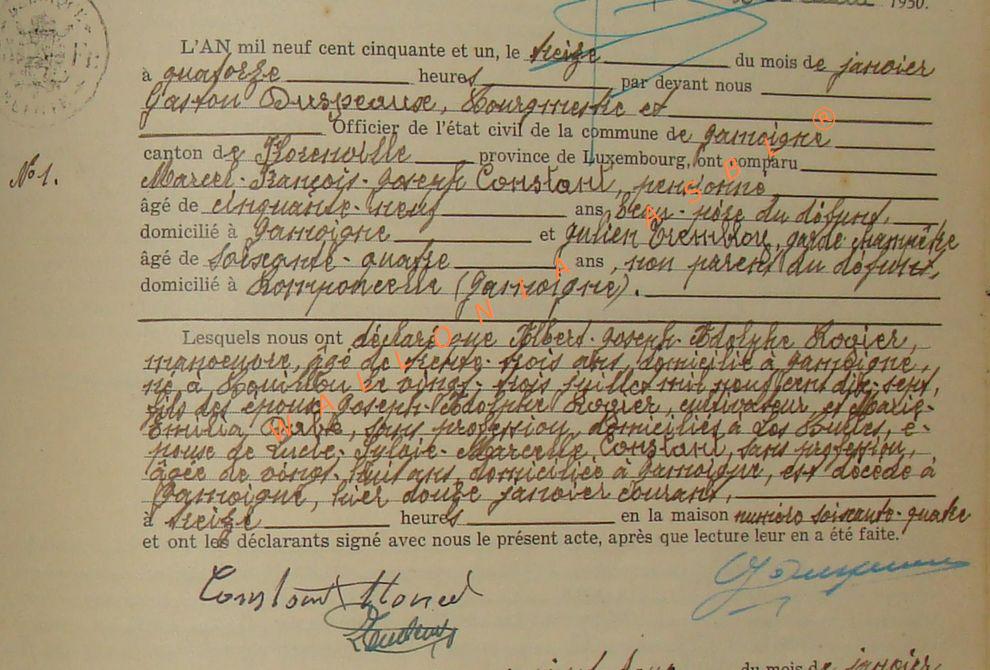 1950.
L'AN mil neuf cent cinquante et un, le treize du mois de janvier
à quatorze heures par devant nous
Gaston Duspeaux, Bourgmestre et
Officier de l'état civil de la commune de Jamoigne
N° 1.
canton de Florenville province de Luxembourg, ont comparu
Marcel-François-Joseph Constant, pensionné
âgé de cinquante-neuf ans, beau-père du défunt,
domicilié à Jamoigne et Julien Tremblon, garde champêtre
âgé de soixante-quatre ans, non parent du défunt,
domicilié à Romponcelle (Jamoigne).
Lesquels nous ont déclaré que Albert-Joseph-Adolphe Rogier,
manoeuvre, âgé de trente-trois ans, domicilié à Jamoigne,
né à le vingt-trois juillet mil neuf cent dix-sept,
fils des époux Joseph-Adolphe Rogier, cultivateur, et Marie-
Emilia sans profession, domiciliés à Les Bulles, é-
poux de Lucie-Sylvie-Marcelle Constant, sans profession,
âgée de vingt-huit ans, domiciliée à Jamoigne, est décédé à
Jamoigne, hier douze janvier courant,
à treize heures en la maison numéro soixante-quatre
et ont les déclarants signé avec nous le présent acte, après que lecture leur en a été faite.
Constant Marcel
WALLONIA ASBL ®
du mois de janvier